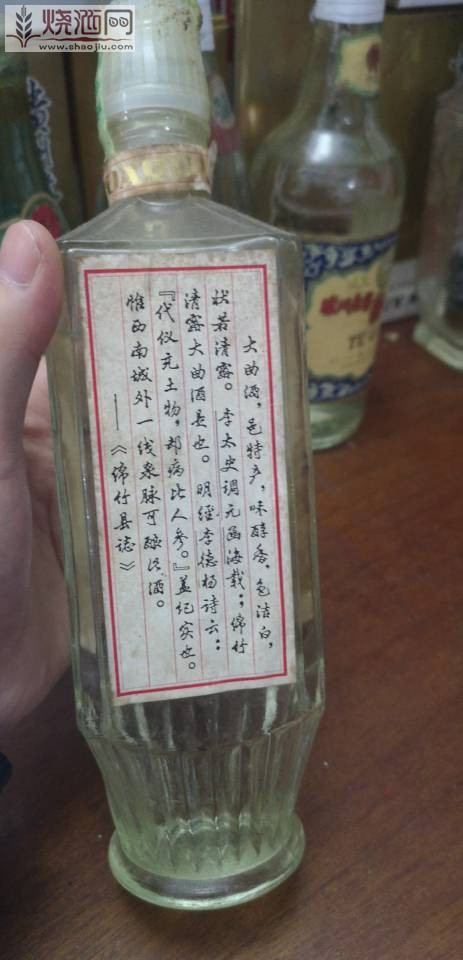 烧酒网
www.shaojiu.com
大曲酒，邑特产，味醇香，色洁白，
状若清露。李太史调元函海载：，绵竹
清露大曲酒是也。明经李德杨诗云：
『代仪充土物，却病比人参。』盖纪实也。
惟西南城外一线泉脉可酿此酒。
——《绵竹县志》